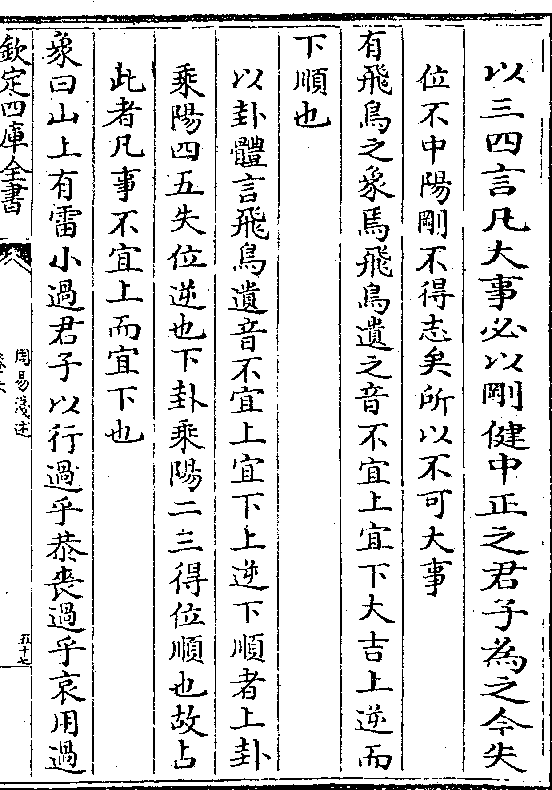 以三四言凡大事必以剛健中正之君子為之今失
位不中陽剛不得志矣所以不可大事
有飛鳥之象焉飛鳥遺之音不宜上宜下大吉上逆而
下順也
以卦體言飛鳥遺音不宜上宜下上逆下順者上卦
乘陽四五失位逆也下卦乘陽二三得位順也故占
此者凡事不宜上而宜下也
象曰山上有雷小過君子以行過乎恭喪過乎哀用過
欽定四庫全書
周易淺述
五十七